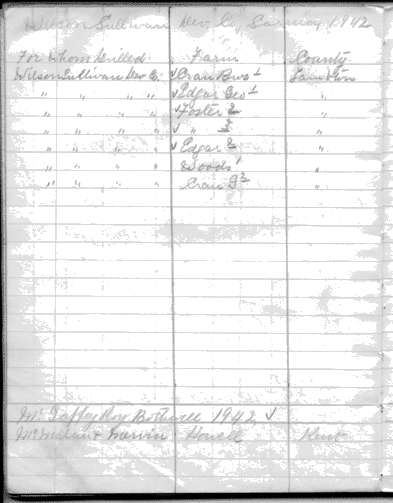 Wilson Sullivan Dev Co, Sarnia, 1942
For Whom Drilled Farm County
Wilson Sullivan Dev Co. ✓ Cran Bros 1 Lambton
" " " " ✓ Edgar Geo 1 "
" " " " ✓ Foster 2 "
" " " " ✓ " 3 "
" " " " ✓ Edgar 2 "
" " " " Woods 1 "
" " " " Cran G 2 "
Roy Bothwell 1942 ✓
McMillan & Howell Kent